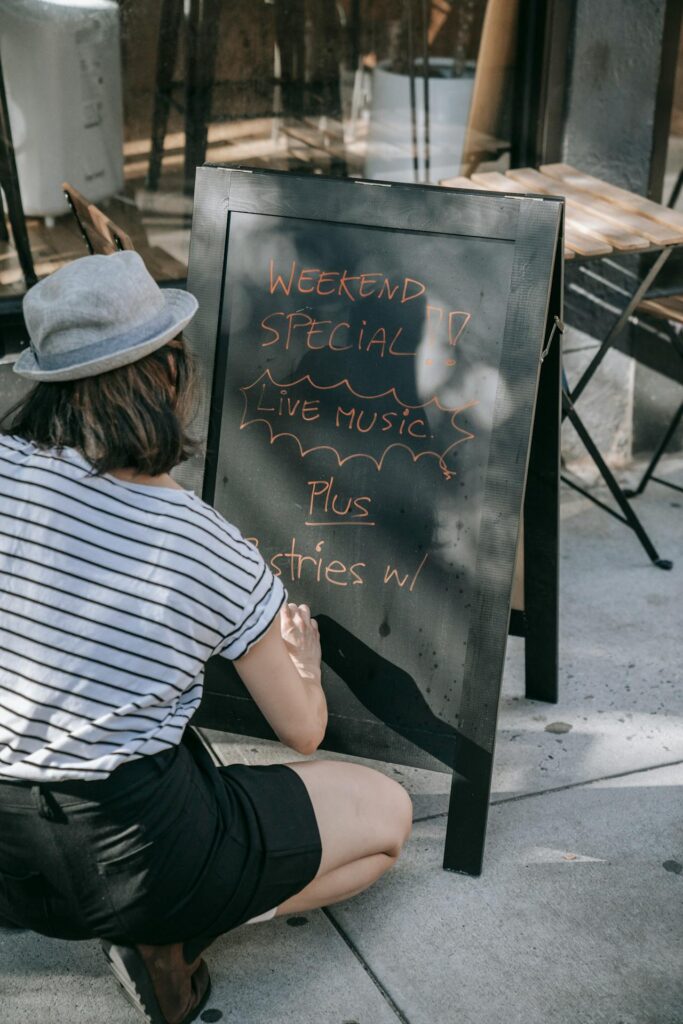 WEEKEND
SPECIAL!!
LIVE MUSIC.
Plus
stries w/